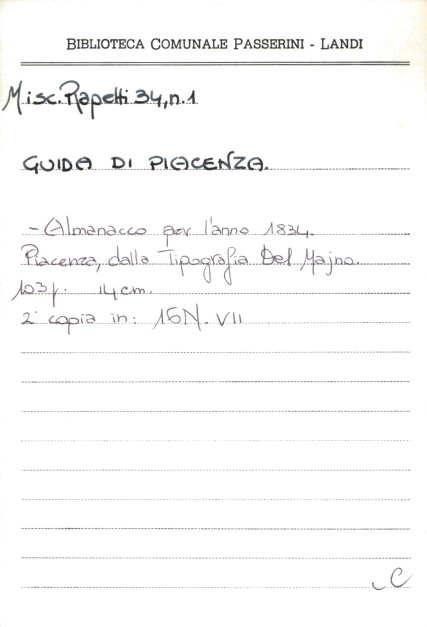 BIBLIOTECA COMUNALE PASSERINI - LANDI
Misc. Rapetti 34, n. 1
GUIDA DI PIACENZA.
- Almanacco per l'anno 1834.
Piacenza, dalla Tipografia Del Majno.
103 p. 14 cm.
2ª copia in: 16N. VII
C